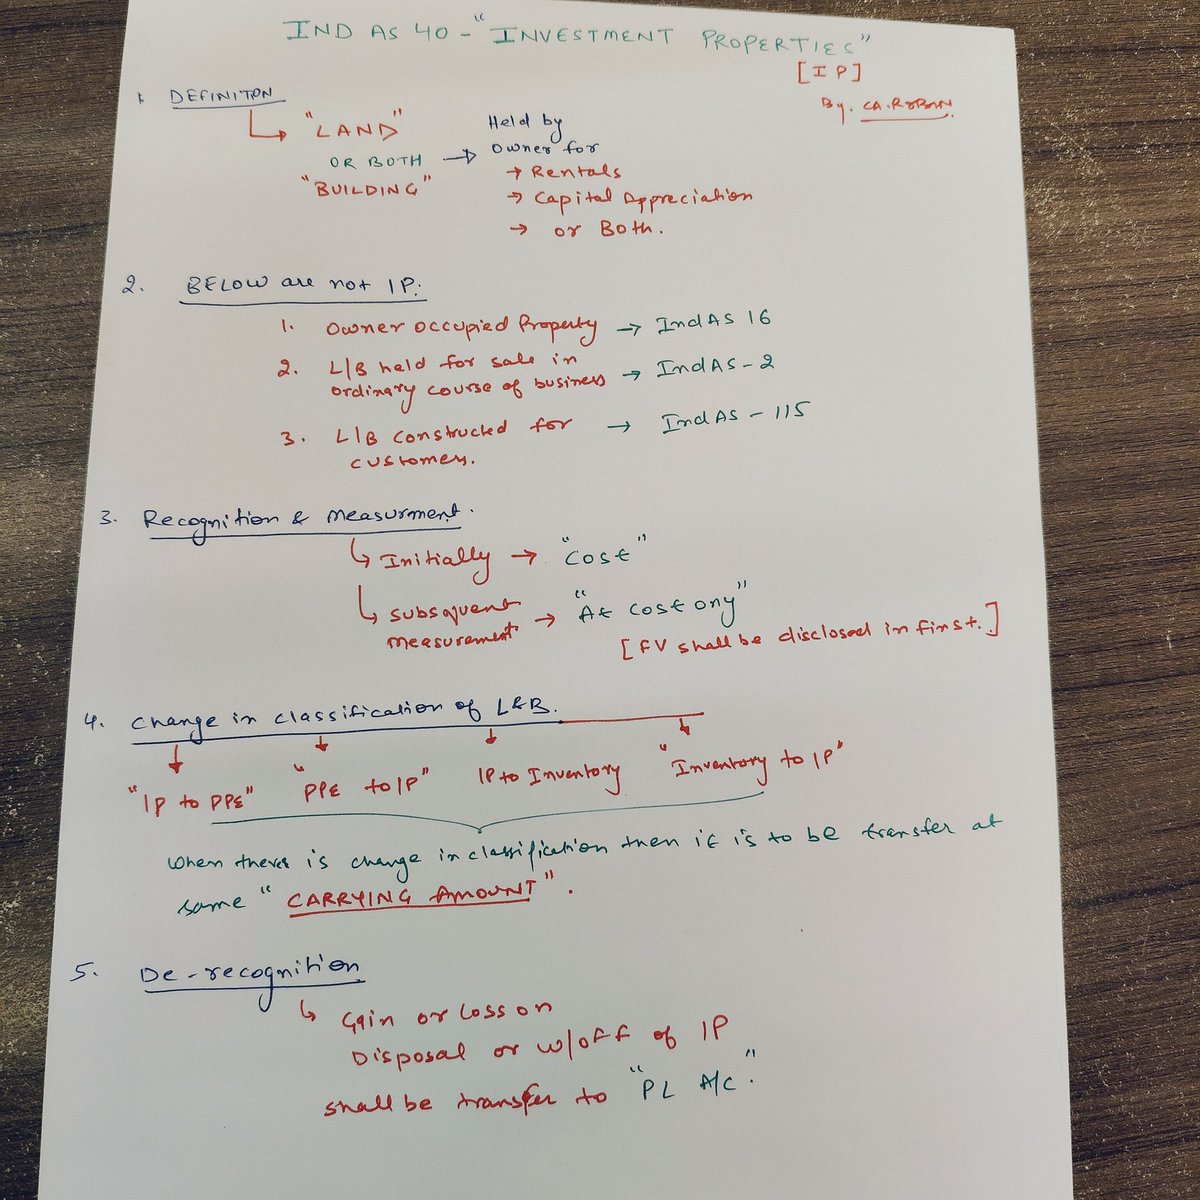 IND AS 40 - "INVESTMENT PROPERTIES"
[IP]
By. CA.ROBIN
1. DEFINITON
"LAND"
OR BOTH
"BUILDING"
→ Held by
Owner for
→ Rentals
→ Capital Appreciation
→ or Both.
2. BELOW are not IP:
1. Owner occupied Property → IndAS 16
2. L/B held for sale in
ordinary course of business → IndAS-2
3. L/B constructed for → IndAS - 115
customers.
3. Recognition & measurment.
Initially → "cost"
subsquent → "At cost ony"
measurement
[FV shall be disclosed in finst.]
4. change in classification of L&B.
"IP to PPE" "PPE to IP" IP to Inventory "Inventory to IP"
when theres is change in classification then it is to be transfer at
same "CARRYING AMOUNT".
5. De-recognition
Gain or Loss on
Disposal or w/off of IP
shall be transfer to "PL A/c."